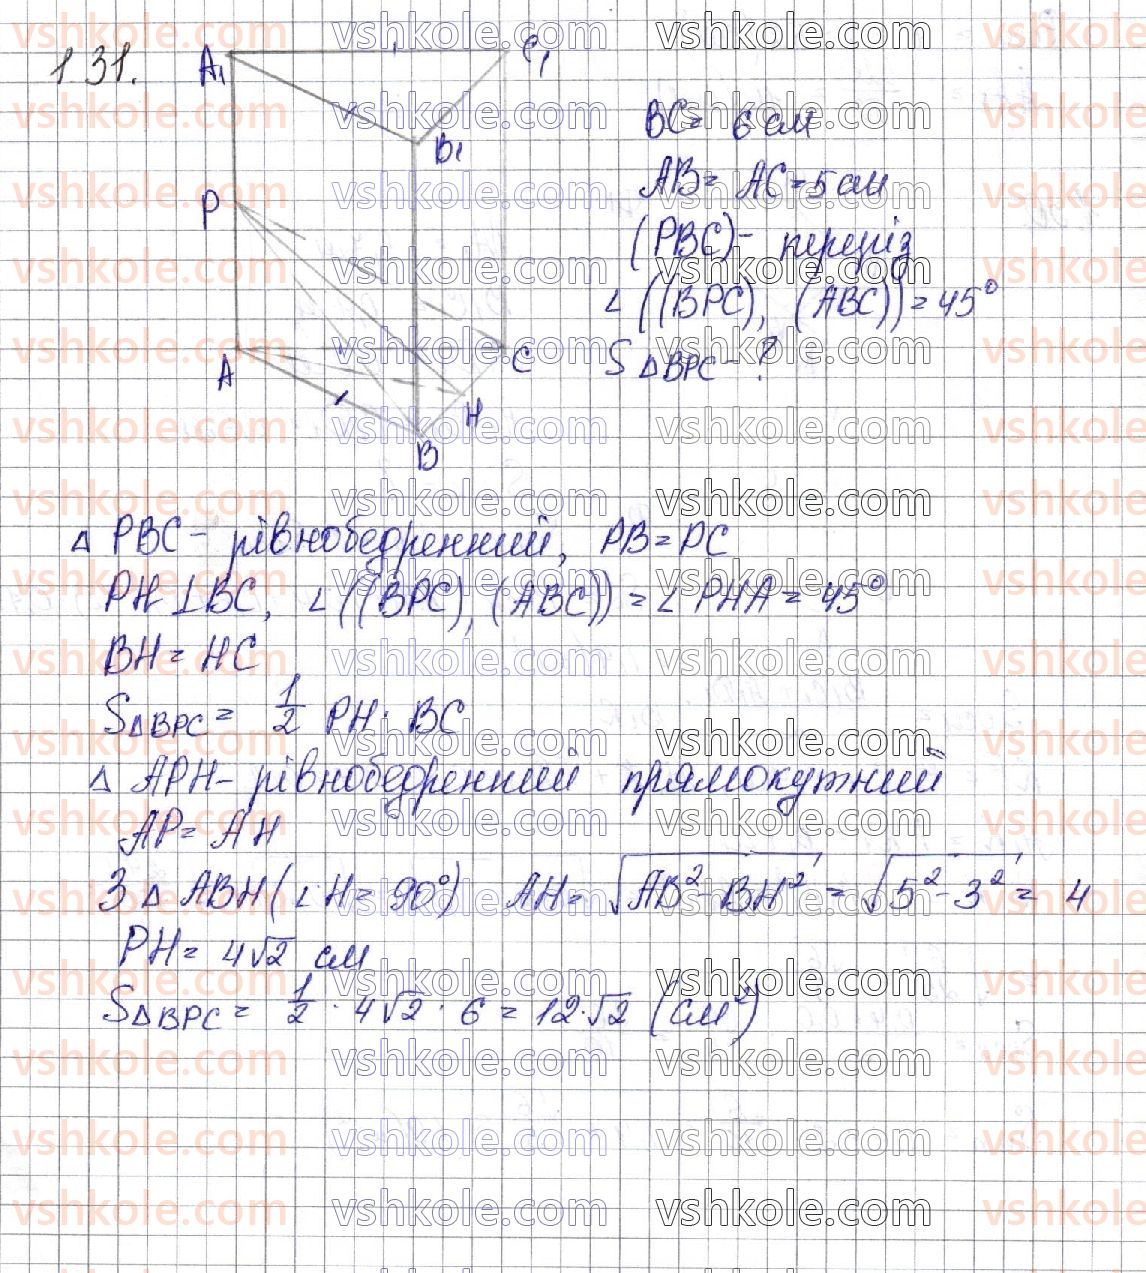 1.31.
A₁
C₁
B₁
P
A
C
H
B
BC = 6 см
AB = AC = 5 см
(PBC) - переріз
∠((BPC), (ABC)) = 45°
S△BPC - ?
△ PBC - рівнобедренний, PB = PC
PH ⊥ BC, ∠((BPC), (ABC)) = ∠ PHA = 45°
BH = HC
S△BPC = 1/2 PH · BC
△ APH - рівнобедренний прямокутний
AP = AH
З △ ABH (∠ H = 90°) AH = √(AB² - BH²) = √(5² - 3²) = 4
PH = 4√2 см
S△BPC = 1/2 · 4√2 · 6 = 12·√2 (см²)
vshkole.com